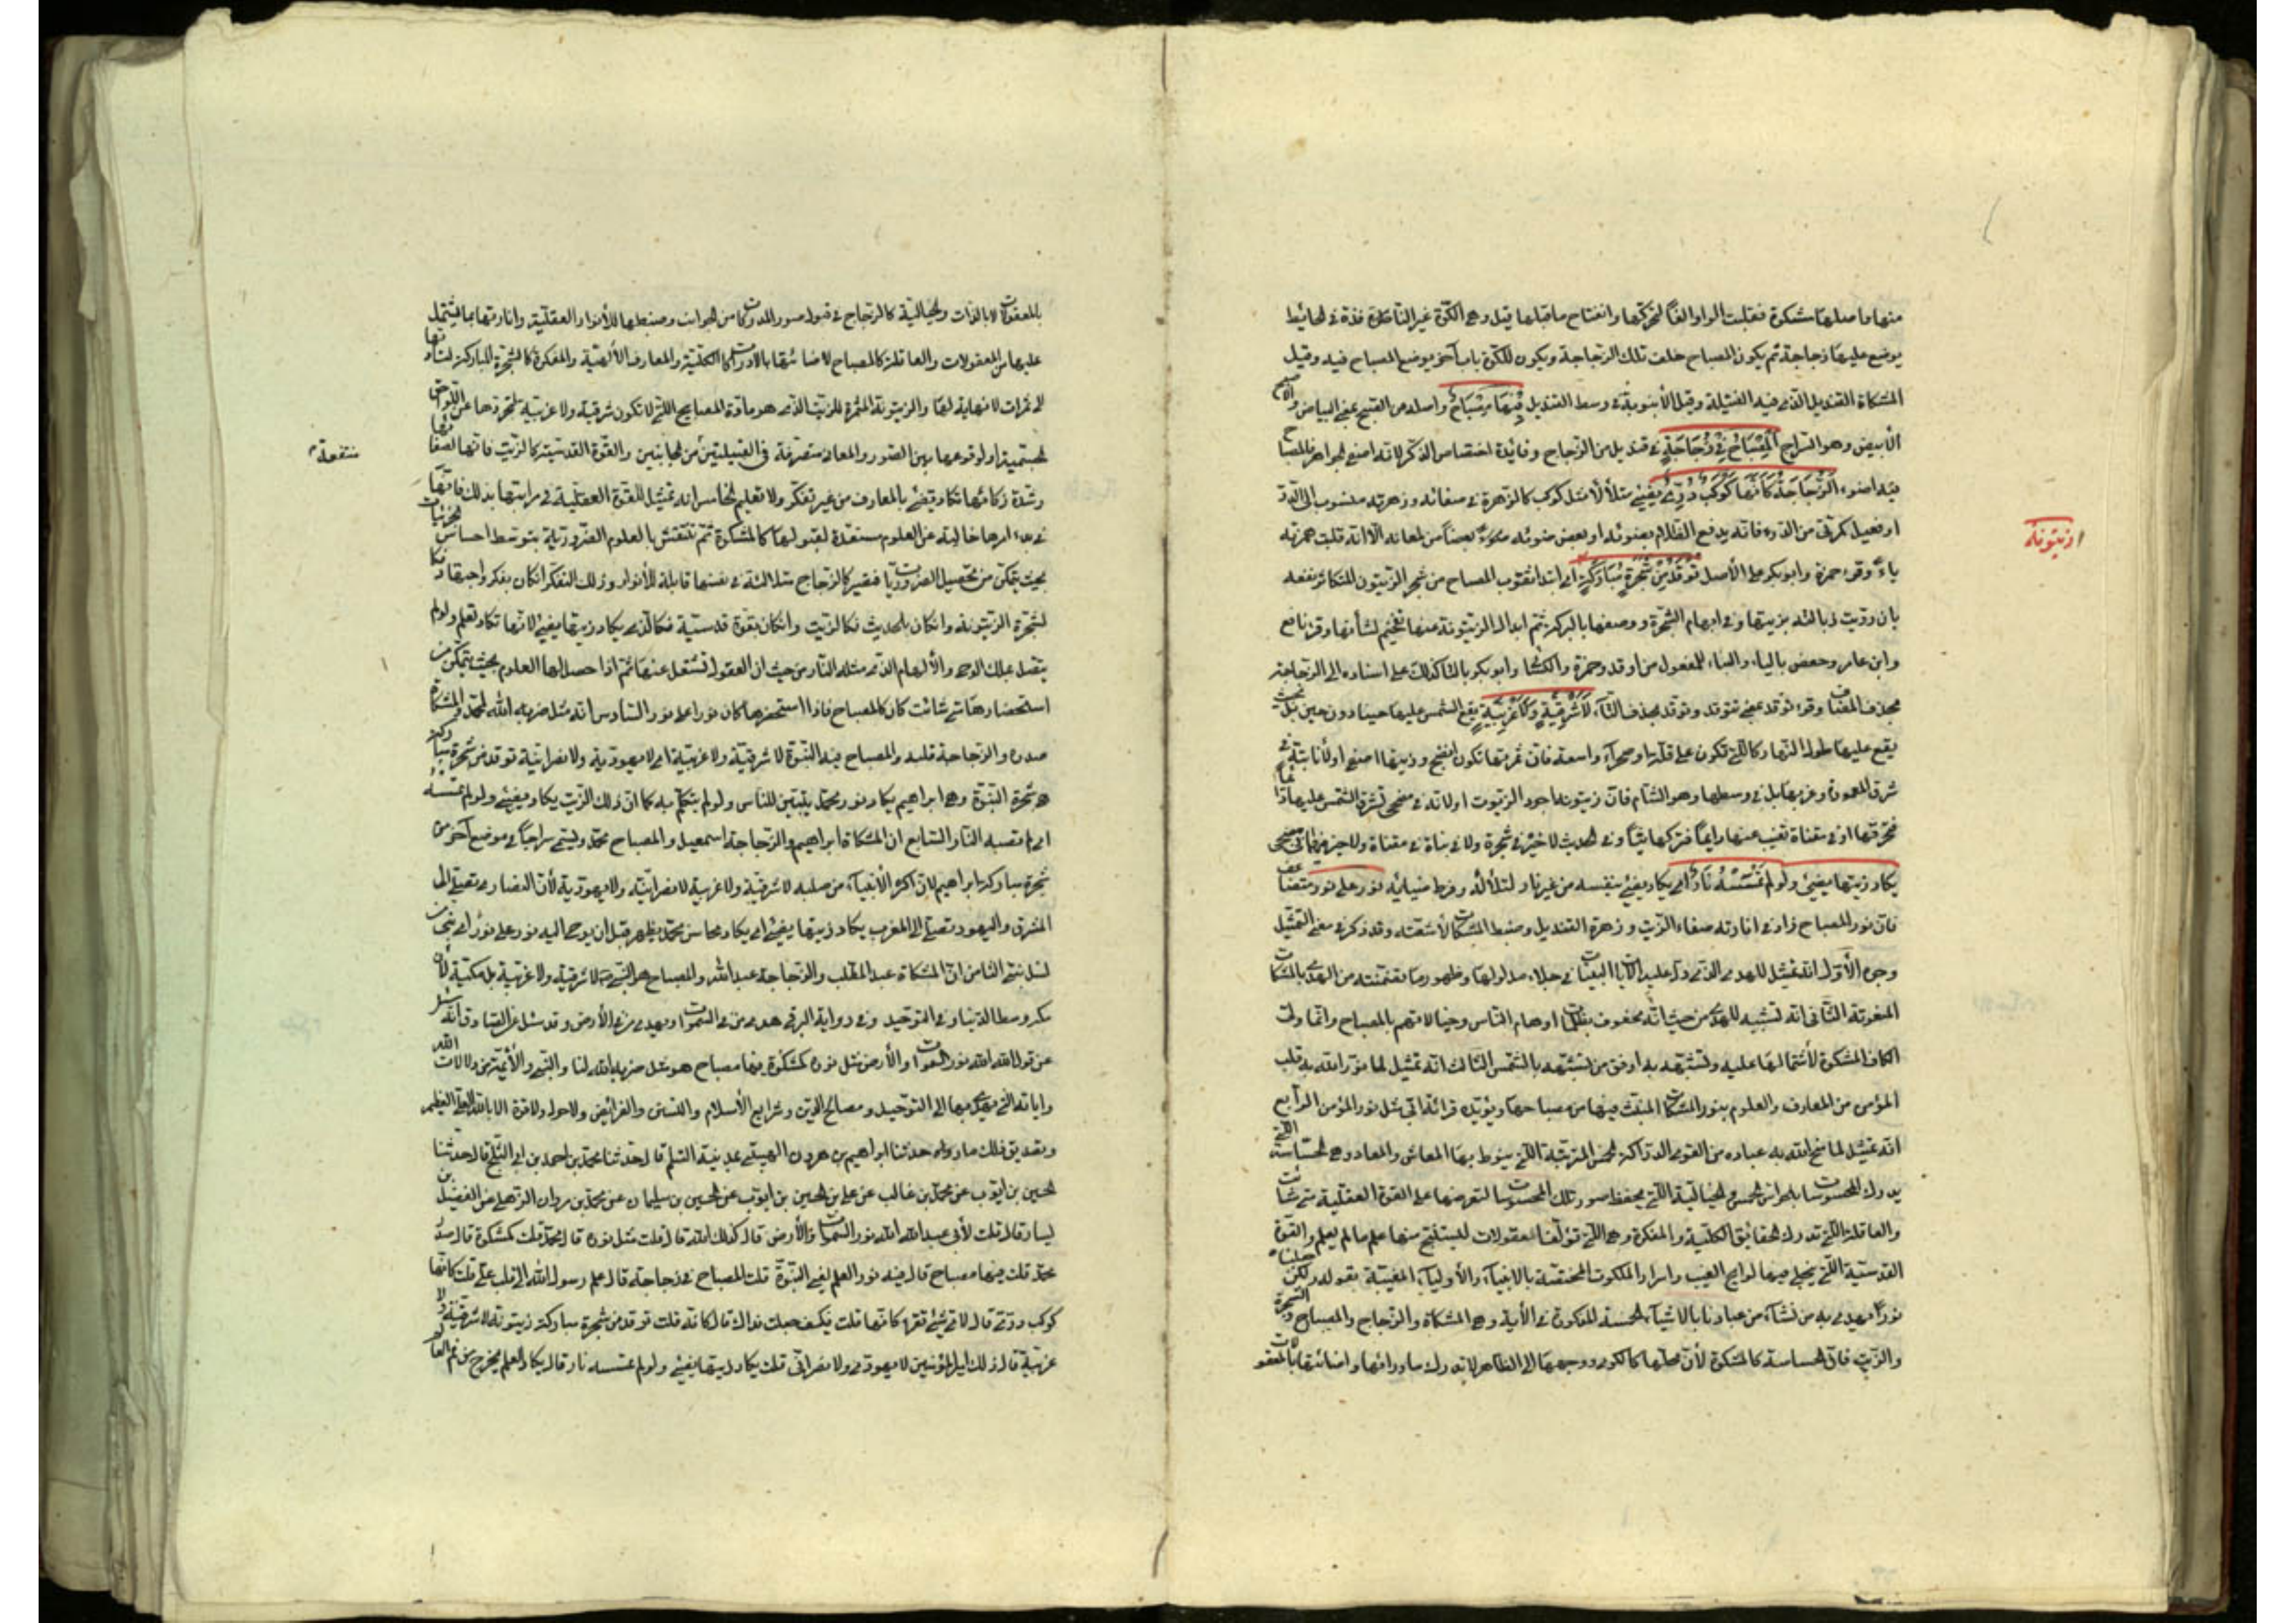 منها واصلها مشكوة فقلبت الواو الفاً لتحركها وانفتاح ماقبلها قيل وهى الكوّة غير النافذة فى الحائط
يوضع عليها زجاجة ثم يكون المصباح خلف تلك الزجاجة ويكون للكوّة باب آخر يوضع المصباح فيه وقيل
المشكاة القنديل الذى فيه الفتيلة وقيل الأنبوبة فى وسط القنديل فِيهَا مِصْبَاحٌ واصله من القبح بمعنى البياض والأصبح
الأبيض وهو السراج اَلْمِصْبَاحُ فِى زُجَاجَةٍ فى قنديل من الزجاج وفائدة اختصاص الذكر لانه اصفى الجواهر فالمصباح
فيه اضوء اَلزُّجَاجَةُ كَأَنَّهَا كَوْكَبٌ دُرِّىٌّ يضيئ متلألأ مثل كوكب كالزهرة فى صفائه وزهرته منسوب الى الدرّ
او فعيل كمرّيق من الدرء فانه يدفع الظلام بضوئه او بعض ضوئه بعضاً من لمعانه الّا انه قلبت همزته
ياءً وقرء حمزة وابوبكر على الأصل تُوقَدُ مِنْ شَجَرَةٍ مُبَارَكَةٍ اى ابتدا ثقوب المصباح من شجر الزيتون المتكاثر نفعه
زيتونة
بان رويت ذبالته بزيتها وفى ابهام الشجرة ووصفها بالبركة ثم ابدال الزيتونة منها تفخيم لشأنها وقرء نافع
وابن عامر وحفص بالياء والبناء للمفعول من اوقد وحمزة والكسائى وابوبكر بالتاء كذلك على اسناده الى الزجاجة
بحذف المضاف وقرء توقد بمعنى تتوقد ويوقد بحذف التاء لَاشَرْقِيَّةٍ وَلَاغَرْبِيَّةٍ يقع الشمس عليها حيناً دون حين بل بحيث
يقع عليها طول النهار كالتى تكون على قلة او صحراء واسعة فان ثمرتها تكون انضج وزيتها اصفى او لا نابتة فى
شرق المعمورة وغربها بل فى وسطها وهو الشام فان زيتونه اجود الزيتون او لا فى مضحى تشرق الشمس عليها دائماً
فتحرقها او فى مقناة تغيب عنها دايماً فتركها نيّاً وفى الحديث لا خير فى شجرة ولا فى نبات فى مقناة ولا خير فيهما فى مضحى
يكاد زيتها يضيئ ولولم تَمْسَسْهُ نَارٌ اى يكاد يضيئ بنفسه من غير نار لتلألئه وفرط ضيائه نور على نور متضاعف
فان نور المصباح زاد فى انارته صفاء الزيت وزهرة القنديل وضبط المشكات لأشعته وقد ذكر فى معنى التمثيل
وجوه الأول انه تمثيل للهدى الذى دل عليه الآيات البينات فى جلاء مدلولها وظهور ما تضمنته من الهدى بالمشكات
المنعوتة الثانى انه تشبيه للهدى من حيث انه محفوف بظلمات اوهام الناس وخيالاتهم بالمصباح وانما ولى
الكاف المشكوة لأشتمالها عليه وتشبيهه به اوفق من تشبيهه بالشمس الثالث انه تمثيل لما نور الله به قلب
المؤمن من المعارف والعلوم بنور المشكات المنبث فيها من مصباحها ويؤيده قرائة ابى مثل نور المؤمن الرابع
انه تمثيل لما منح الله به عباده من القوى الدراكة الخمس المترتبة التى ينوط بها المعاش والمعاد وهى الحساسة التى
يدرك المحسوسات بالحواس الخمس والخيالية التى يحفظ صور تلك المحسوسات لتعرضها على القوة العقلية متى شائت
والعاقلة التى تدرك الحقايق الكلية والمفكرة وهى التى تؤلف المعقولات لتستنتج منها علم ما لم يعلم والقوة
القدسية التى يتجلى فيها لوايح الغيب واسرار الملكوت المختصة بالانبياء والأولياء المعنيّة بقوله ولكن جعلناه
نوراً نهدى به من نشاء من عبادنا بالاشياء الخمسة المذكورة فى الأية وهى المشكاة والزجاج والمصباح والشجرة
والزيت فان الحساسة كالمشكوة لأن محلها كالكوى ووجهها الى الظاهر لا تدرك ماورائها واضائتها بالمعقولات
بالمعقولات لا بالذات والخيالية كالزجاج فى قبول صور المدركات من الجوانب وضبطها للأنوار العقلية وانارتها بما تشتمل
عليها من المعقولات والعاقلة كالمصباح لاضائتها بالادراكات الكلية والمعارف الألهية والمفكرة كالشجرة المباركة لتأديها
الى ثمرات لا نهاية لها والزيتونة المثمرة للزيت الذى هو مادة المصابيح التى لا تكون شرقية ولا غربية لتجردها عن اللواحق
الجسمية او لوقوعها بين الصور والمعانى متصرفة فى القبيلتين من الجانبين والقوة القدسية كالزيت فانها لصفائها
منتفعة
وشدة ذكائها تكاد يضئ بالمعارف من غير تفكر ولا تعليم الخامس انه تمثيل للقوة العقلية فى مراتبها بذلك فانها
فى بدء امرها خالية عن العلوم مستعدة لقبولها كالمشكوة ثم تنتقش بالعلوم الضرورية بتوسط احساس الجزئيات
بحيث يتمكن من تحصيل النظريات فيصير كالزجاج متلألئة فى نفسها قابلة للأنوار وذلك التمكن انكان بفكر واجتهاد فكا
لشجرة الزيتونة وانكان بالحدث فكالزيت وانكان بقوة قدسية فكالذى يكاد زيتها يضئ لانها تكاد تعلم ولو لم
يتصل بملك الوحى والألهام الذى مثله النار من حيث ان العقول تشتعل عنها ثم اذا حصل لها العلوم بحيث يتمكن من
استحضارها متى شائت كان كالمصباح فاذا استحضرها كان نوراً على نور السادس انه مثل ضربه الله لمحمد والمشكاة
صدره والزجاجة قلبه والمصباح فيه النبوة لا شرقية ولا غربية اى لا يهودية ولا نصرانية توقد من شجرة مباركة
هى شجرة النبوة وهى ابراهيم يكاد نور محمد يتبين للناس ولو لم يتكلم به كما ان ذلك الزيت يكاد يضيئ ولو لم تمسسه
اى تصبه النار السابع ان المشكاة ابراهيم والزجاجة اسمعيل والمصباح محمد وليسمى سراجاً فى موضع آخر من
شجرة مباركة ابراهيم لان اكثر الأنبياء من صلبه لا شرقية ولا غربية لا نصرانية ولا يهودية لأن النصارى تصلى الى
المشرق واليهود تصلى الى المغرب يكاد زيتها يضئ اى يكاد محاسن محمد يظهر قبل ان يوحى اليه نور على نور اى نبى من
نسل نبى الثامن ان المشكاة عبد المطلب والزجاجة عبد الله والمصباح هو النبى لا شرقية ولا غربية بل مكية لأن
مكة وسط الدنيا وفى التوحيد وفى رواية البرقى هدى من فى السموات وهدى من فى الأرض وقد سئل عن الصادق انه سئل
عن قول الله الله نور السموات والأرض مثل نوره كمشكوة فيها مصباح هو مثل ضربه الله لنا والنبى والأئمة من دلالات الله
واياته التى يهتدى بها الى التوحيد ومصالح الدين وشرايع الأسلام والسنن والفرائض ولا حول ولا قوة الا بالله العلى العظيم
وتصديق ذلك ما رواه حدثنا ابراهيم بن هرون الهيتى بمدينة السلم قال حدثنا محمد بن احمد بن ابى الثلج قال حدثنا
الحسين بن ايوب عن محمد بن غالب عن على بن الحسين بن ايوب عن الحسين بن سليمان عن محمد بن مروان الذهلى عن الفضيل بن
يسار قال قلت لأبى عبد الله الله نور السموات والأرض قال كذلك الله قال قلت مثل نوره قال محمد قلت كمشكوة قال صدر
محمد قلت فيها مصباح قال فيه نور العلم يعنى النبوة قلت المصباح فى زجاجة قال علم رسول الله الى قلب على قلت كانها
كوكب درى قال لاى شئ تقرء كانها قلت فكيف جعلت فداك قال كانه قلت توقد من شجرة مباركة زيتونة لا شرقية ولا
غربية قال ذلك امير المؤمنين لا يهودى ولا نصرانى قلت يكاد زيتها يضيئ ولو لم تمسسه نار قال يكاد العلم يخرج من فم العالم